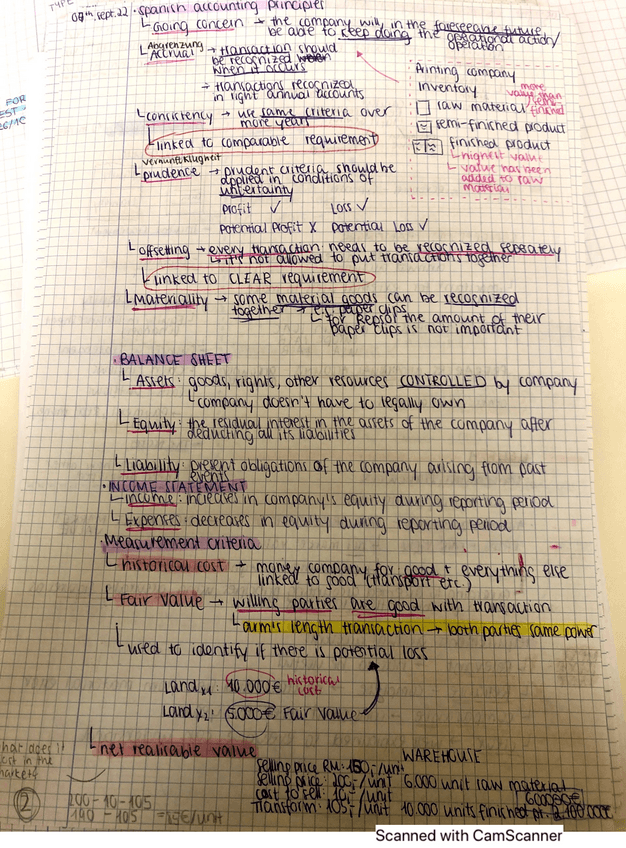 TYPE
07th. Sept. 22 · spanish accounting principles
Going concern → the company will, in the foreseeable future,
be able to keep doing the operational action/
operation
Abgrenzung
Accrual → transaction should
be recognized when
when it occurs
→ transactions recognized
in right annual accounts
Printing company
Inventory
raw material
semi-finished product
finished product
more
value than
finished
highest value
value has been
added to raw
material
FOR
consistency → use same criteria over
more years
linked to comparable requirement
Vernunft Klugheit
prudence → prudent criteria should be
applied in conditions of
uncertainty
Profit ✓ Loss ✓
Potential Profit X Potential Loss ✓
offsetting → every transaction needs to be recognized seperately
↳ it's not allowed to put transactions together
linked to CLEAR requirement
Materiality → some material goods can be recognized
together → e.g. paper clips
↳ for Repsol the amount of their
paper clips is not important
· BALANCE SHEET
Assets: goods, rights, other resources CONTROLLED by company
company doesn't have to legally own
Equity: the residual interest in the assets of the company after
deducting all its liabilities
Liability: present obligations of the company arising from past
events
· INCOME STATEMENT
Income: increases in company's equity during reporting period
Expenses: decreases in equity during reporting period
· Measurement criteria
historical cost → money company for good + everything else
linked to good (transport etc.)
Fair value → willing parties are good with transaction
arm's length transaction → both parties same power
used to identify if there is potential loss
Land x1: 10.000€ historical
cost
Land x2: 5.000€ Fair Value
net realisable value
what does it
cost in the
market?
WAREHOUSE
Selling price RM: 150,-/unit
selling price: 200,-/unit 6.000 unit raw material
cost to sell: 10,-/unit 600000€
Transform: 105,-/unit 10.000 units finished pr. 2.100.000€
2
200-10-105
190-105 =85€/unit
Scanned with CamScanner